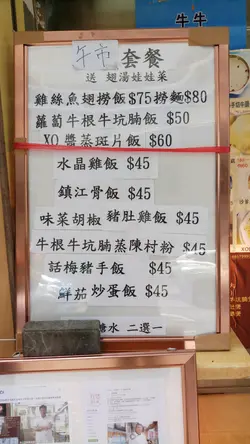 牛牛
午市 套餐
送 翅湯娃娃菜
雞絲魚翅撈飯$75撈麵$80
蘿蔔牛根牛坑腩飯 $50
XO醬蒸斑片飯 $60
水晶雞飯 $45
鎮江骨飯 $45
味菜胡椒豬肚雞飯 $45
牛根牛坑腩蒸陳村粉 $45
話梅豬手飯 $45
鮮茄炒蛋飯 $45
糖水 二選一